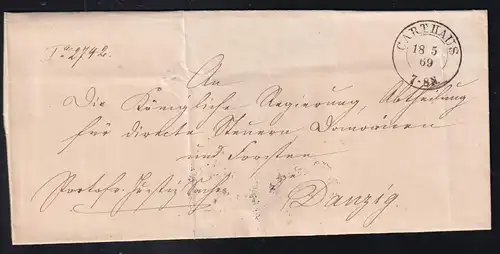 I a 2742.
CARTHAUS
18 5
69
7-8N
An
Die Königliche Regierung, Abtheilung
für directe Steuern, Domainen
und Forsten
Portofr. Justiz Sache
Danzig.